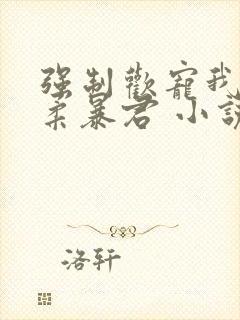 强制歡寵我
柔暴君 小説
洛轩